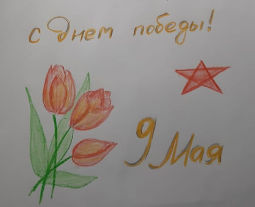 с Днем победы!
9 Мая